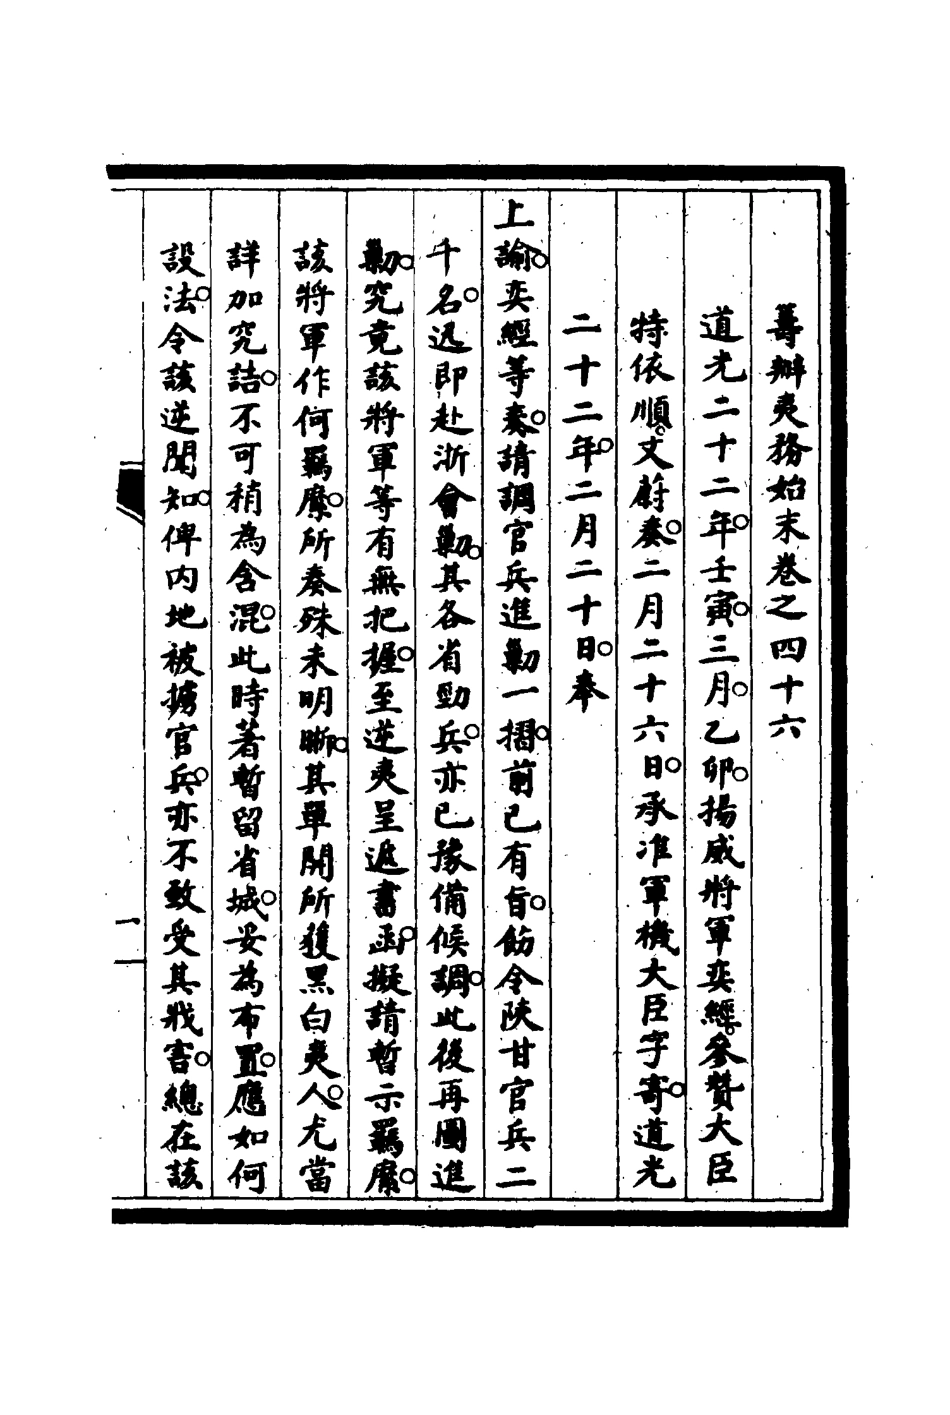 籌辦夷務始末卷之四十六
道光二十二年。壬寅。三月。乙卯。揚威將軍奕經。參贊大臣
特依順。文蔚奏。二月二十六日。承准軍機大臣字寄。道光
二十二年。二月二十日。奉
上諭。奕經等奏。請調官兵進勦一摺。前已有旨。飭令陝甘官兵二
千名。迅即赴浙會勦。其各省勁兵。亦已豫備候調。此後再圖進
勦。究竟該將軍等有無把握。至逆夷呈遞書函。擬請暫示羈縻。
該將軍作何羈縻。所奏殊未明晰。其單開所獲黑白夷人。尤當
詳加究詰。不可稍為含混。此時著暫留省城。妥為布置。應如何
設法。令該逆聞知。俾內地被擄官兵。亦不致受其戕害。總在該
一